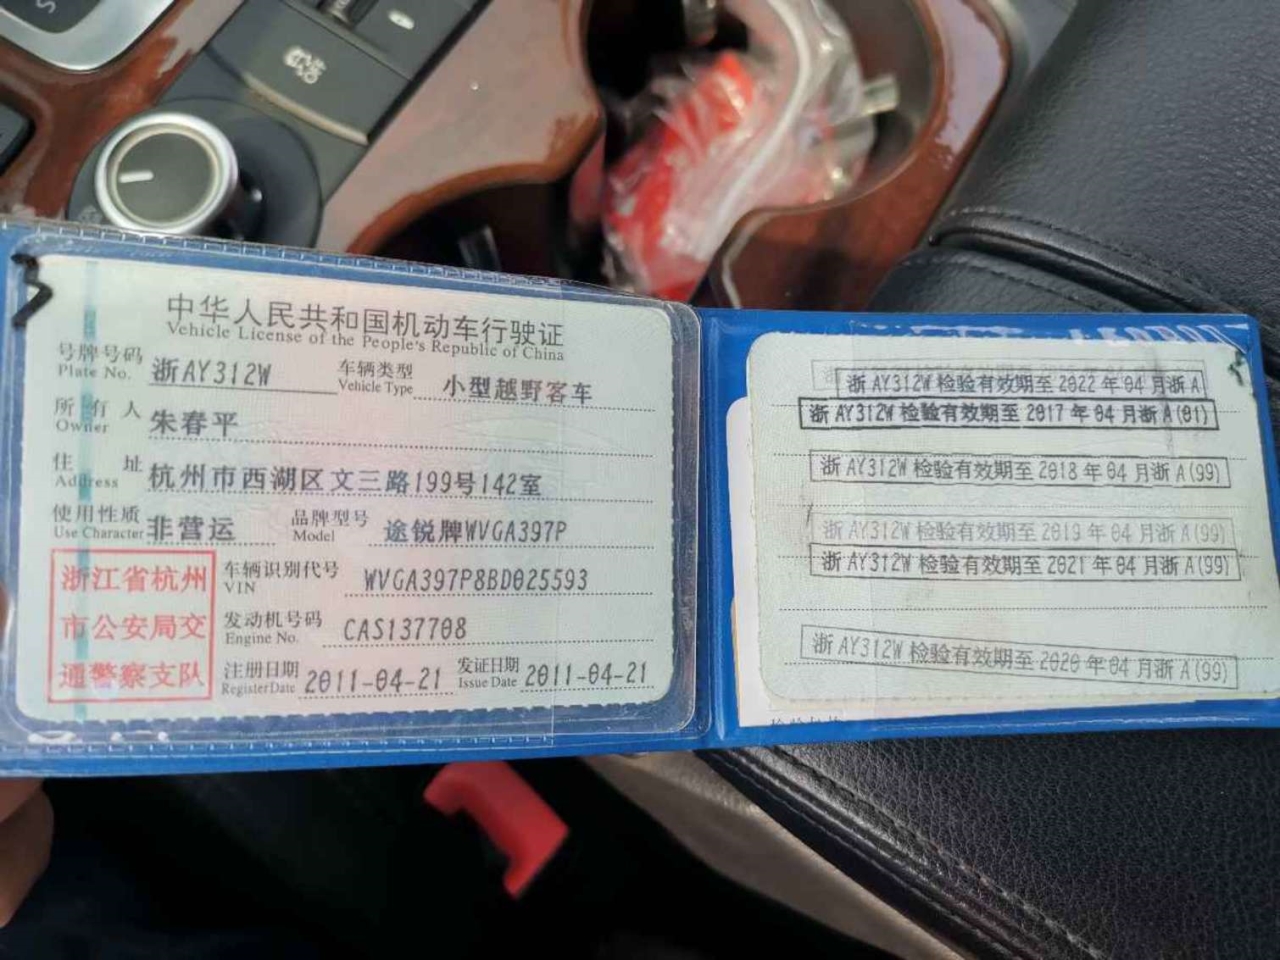 中华人民共和国机动车行驶证
Vehicle License of the People's Republic of China
号牌号码 浙AY312W 车辆类型 小型越野客车
Plate No. Vehicle Type
所有人 朱春平
Owner
住址 杭州市西湖区文三路199号142室
Address
使用性质 非营运 品牌型号 途锐牌WVGA397P
Use Character Model
浙江省杭州
市公安局交
通警察支队
车辆识别代号 WVGA397P8BD025593
VIN
发动机号码 CAS137708
Engine No.
注册日期 2011-04-21 发证日期 2011-04-21
Register Date Issue Date
浙AY312W检验有效期至2022年04月浙A
浙AY312W检验有效期至2017年04月浙A(01)
浙AY312W检验有效期至2018年04月浙A(99)
浙AY312W检验有效期至2019年04月浙A(99)
浙AY312W检验有效期至2021年04月浙A(99)
浙AY312W检验有效期至2020年04月浙A(99)